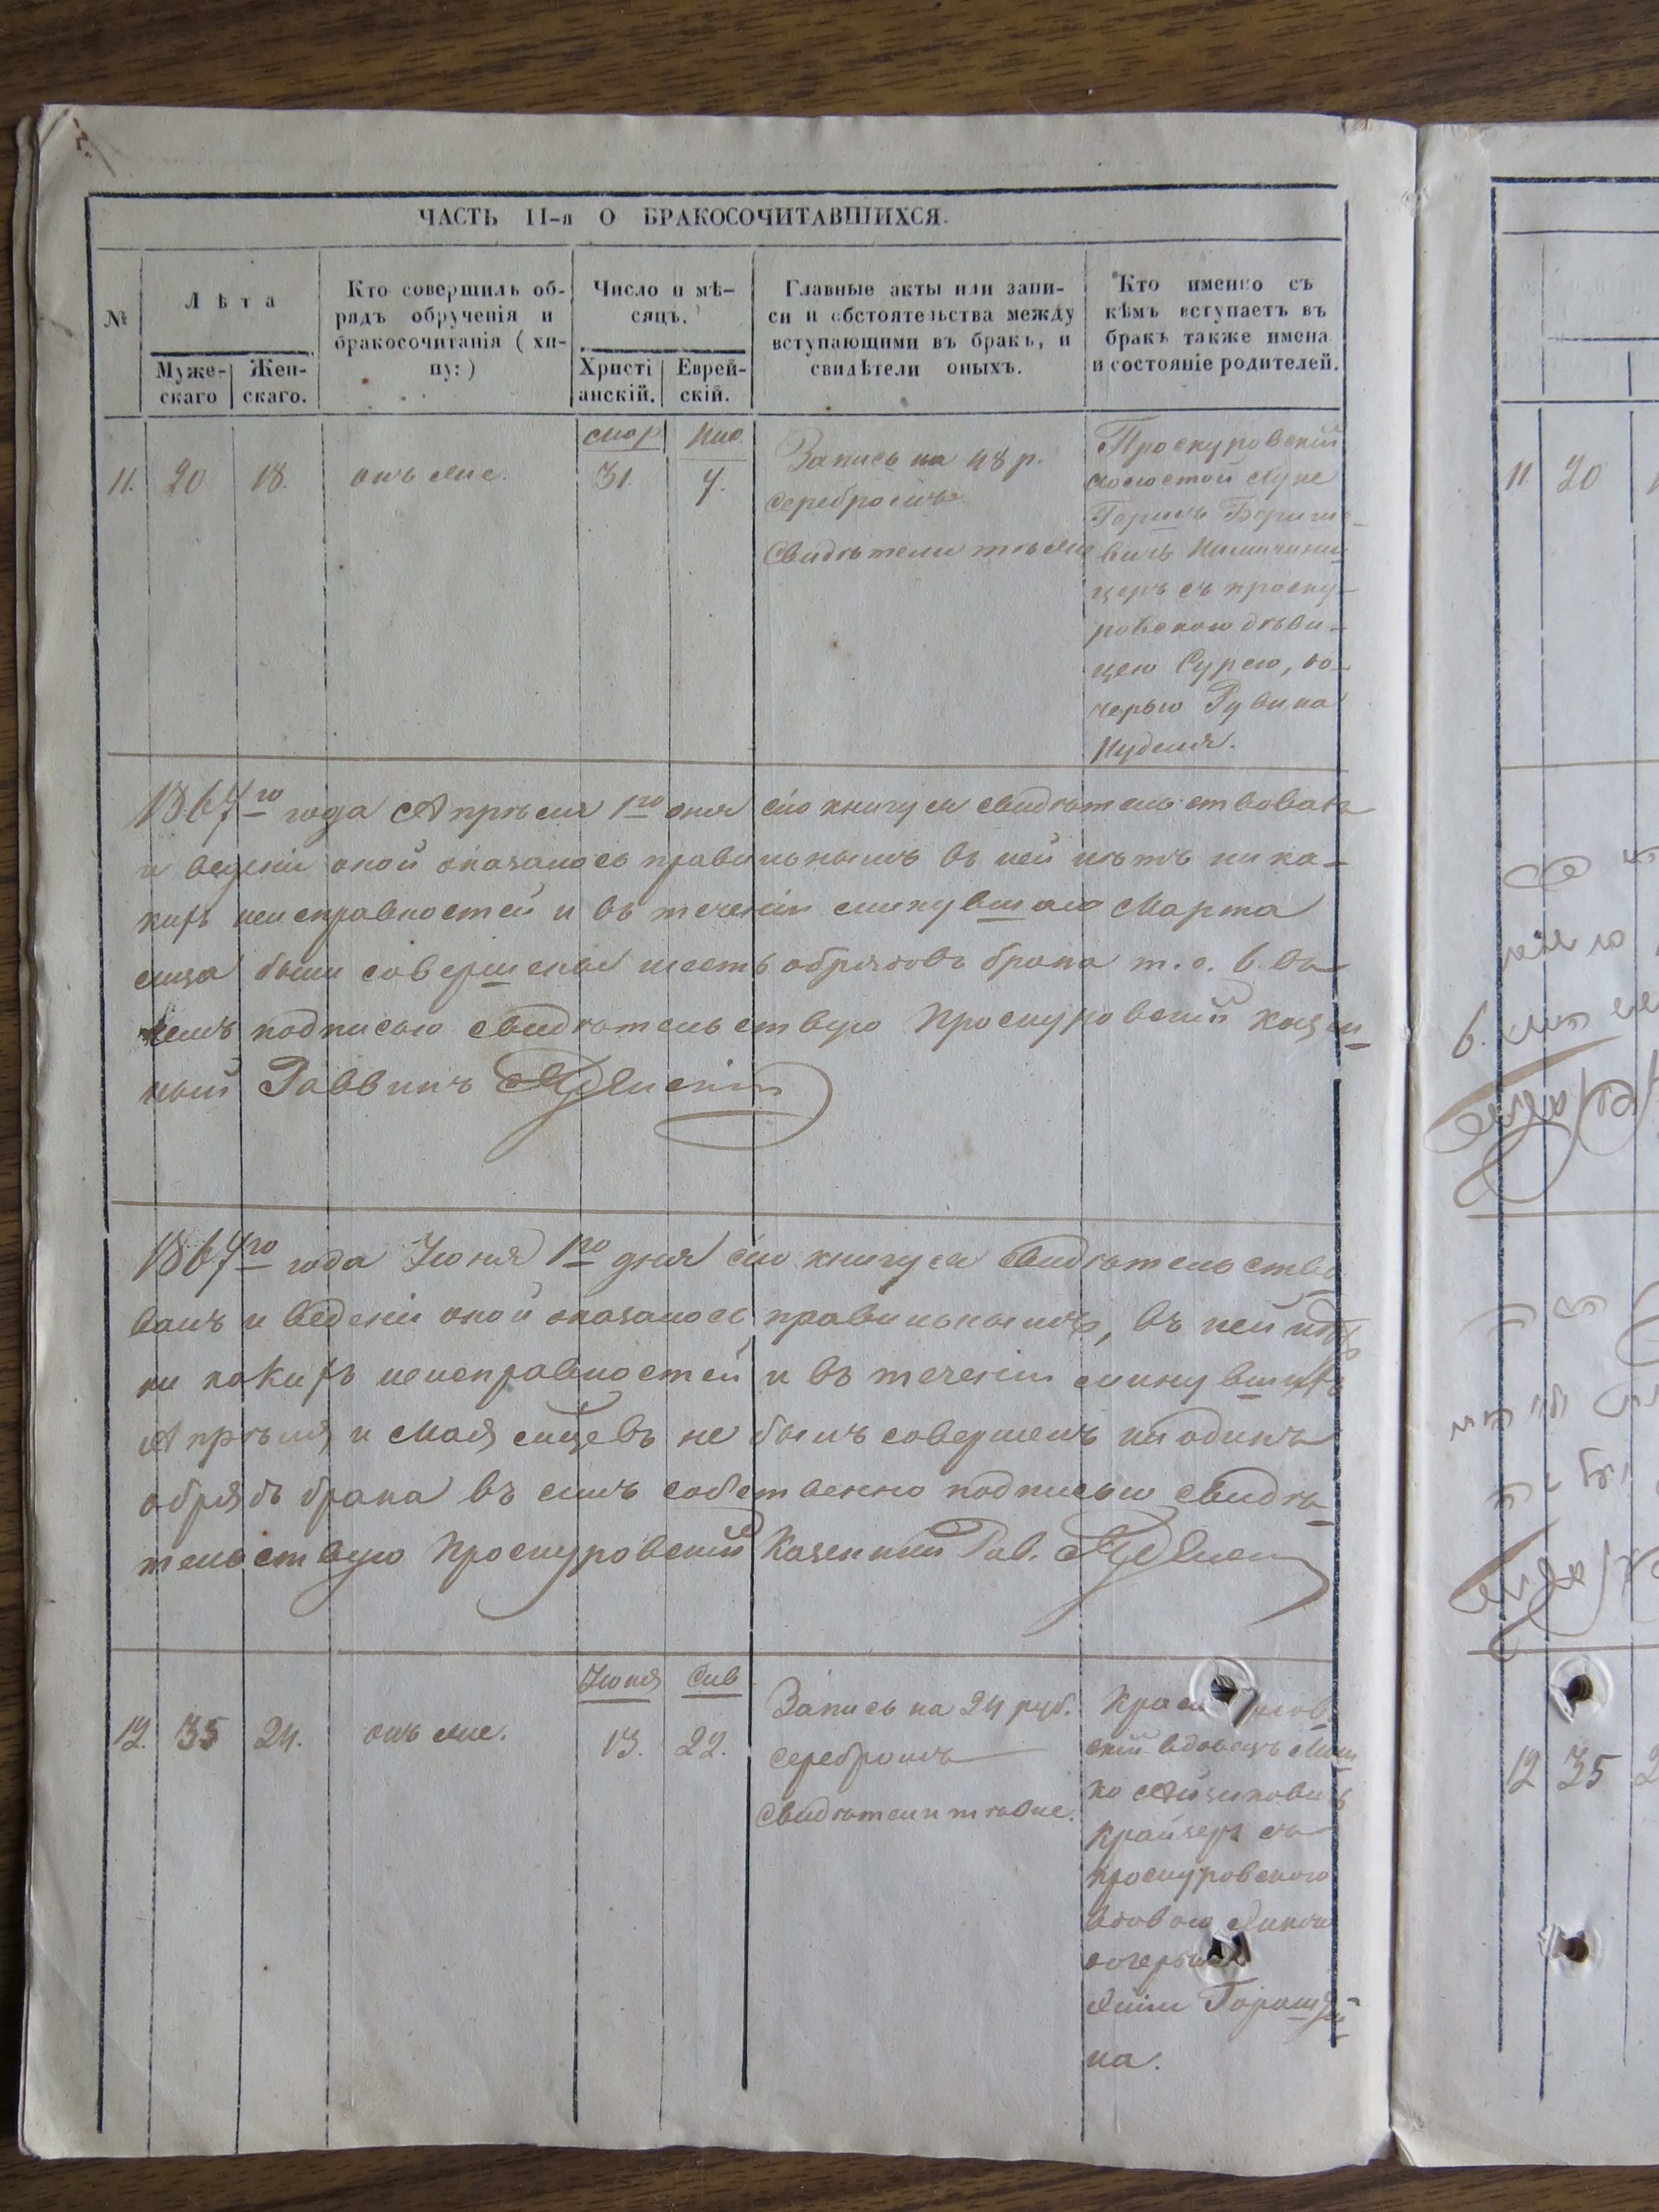 ЧАСТЬ II-я О БРАКОСОЧИТАВШИХСЯ.
№
Лѣта
Муже-
скаго
Жен-
скаго.
Кто совершилъ об-
рядъ обрученія и
бракосочитанія (хи-
пу:)
Число и мѣ-
сяцъ.
Христі
анскій.
Еврей-
скій.
Главные акты или запи-
си и обстоятельства между
вступающими въ бракъ, и
свидѣтели оныхъ.
Кто именно съ
кѣмъ вступаетъ въ
бракъ также имена
и состояніе родителей.
11.
20
18.
онъ же.
Мар
Нис
31.
7.
Запись на 48 р.
серебромъ
Свидѣтели тѣже
Проскуровскій
холостой
Бериш-
вичъ
церъ съ проску-
ровскою дѣви-
цею Сурею, до-
черью Рувина
1867го года Апрѣля 1го дня сію книгу я свидѣтельствовалъ
и веденіи оной оказалось правильнымъ въ ней нѣтъ ника-
кихъ неисправностей и въ теченіи минувшаго Марта
м-ца были совершены шесть обрядовъ брака т. е. 6. въ
чемъ подписью свидѣтельствую Проскуровскій казен-
ный Раввинъ
1867го года Іюня 1го дня сію книгу я свидѣтельство
валъ и веденіи оной оказалось правильнымъ, въ ней нѣтъ
ни какихъ неисправностей и въ теченіи минувшихъ
Апрѣля и Мая м-цевъ не былъ совершенъ ни одинъ
обрядъ брака въ чемъ собственно подписью свидѣ-
тельствую Проскуровскій Казенный Рав.
12.
35
24.
онъ же.
Іюня
Сив
13.
22.
Запись на 24 руб.
серебромъ
Свидѣтели тѣже.
скій вдовецъ
ко Айзиковичъ
Крайзеръ съ
проскуровскою
вдовою
дочерью
на.
11
20
12
35